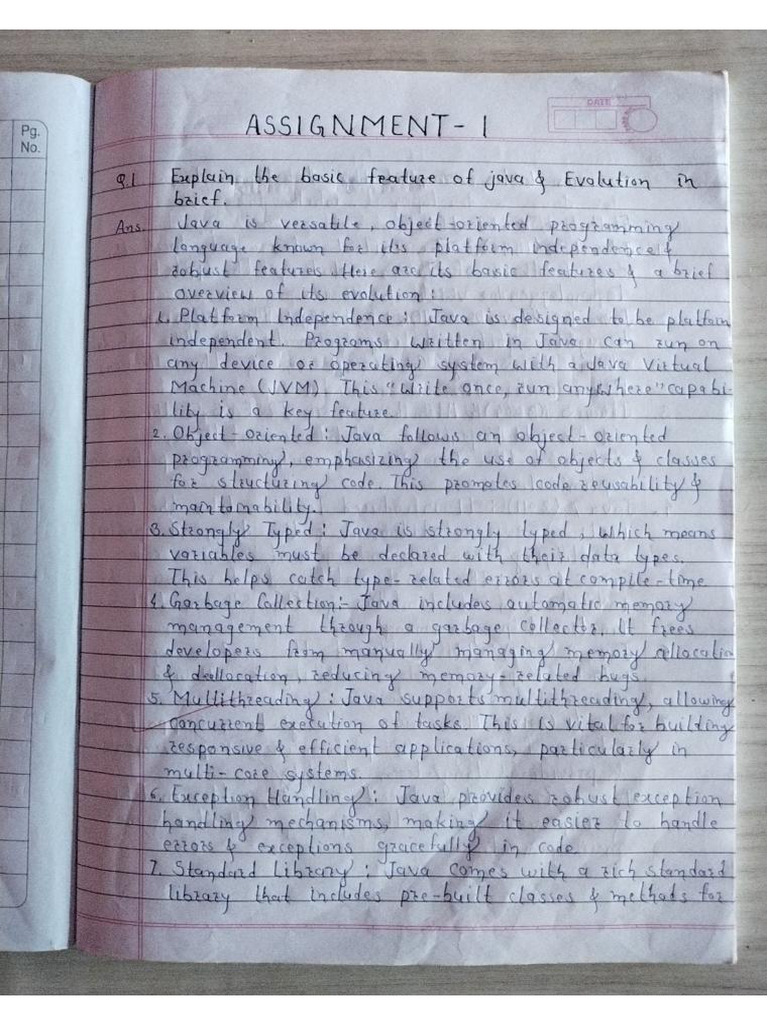 Pg.
No.
DATE
ASSIGNMENT - 1
Q.1 Explain the basic feature of java & Evolution in
brief.
Ans. Java is versatile, object-oriented programming
language known for its platform independence &
robust features. Here are its basic features & a brief
overview of its evolution:
1. Platform Independence: Java is designed to be platform
independent. Programs written in Java can run on
any device or operating system with a Java Virtual
Machine (JVM). This "write once, run anywhere" capabi-
lity is a key feature.
2. Object-oriented: Java follows an object-oriented
programming, emphasizing the use of objects & classes
for structuring code. This promotes code reusability &
maintainability.
3. Strongly Typed: Java is strongly typed, which means
variables must be declared with their data types.
This helps catch type-related errors at compile-time
4. Garbage Collection:- Java includes automatic memory
management through a garbage collector. It frees
developers from manually managing memory allocation
& deallocation, reducing memory-related bugs.
5. Multithreading: Java supports multithreading, allowing
concurrent execution of tasks. This is vital for building
responsive & efficient applications, particularly in
multi-core systems.
6. Exception Handling: Java provides robust exception
handling mechanisms, making it easier to handle
errors & exceptions gracefully in code.
7. Standard Library: Java comes with a rich standard
library that includes pre-built classes & methods for